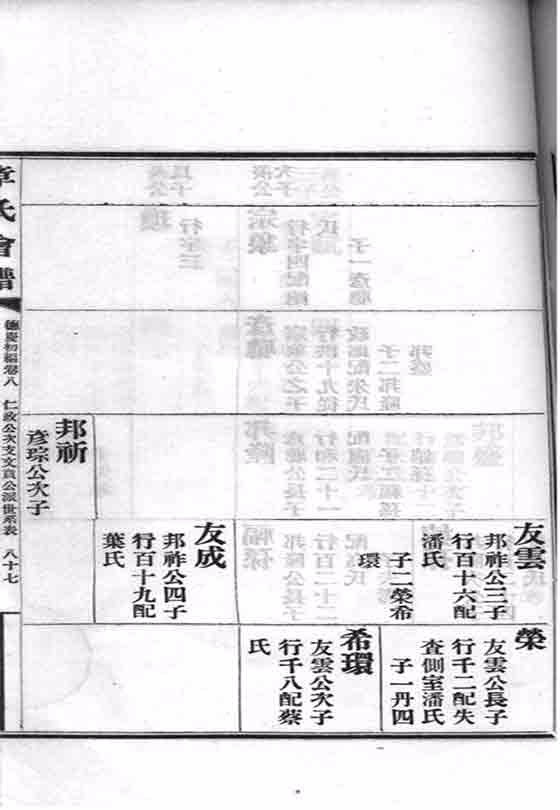 友雲
邦祚公三子
行百十六配
潘氏
子二榮希
環
友成
邦祚公四子
行百十九配
葉氏
邦祈
彥琮公次子
榮
友雲公長子
行千二配失
查側室潘氏
子一丹四
希環
友雲公次子
行千八配蔡
氏
章氏會譜
德慶初編卷八
仁政公次支文貞公派世系表
八十七